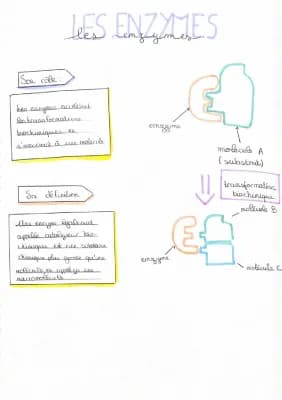 LES ENZYMES
les enzymes
Son rôle:
Les enzymes accélèrent
les transformations
biochimiques et
s'associent à une molécule
enzyme
molécule A
(substrat)
transformation
biochimique
Sa définition
Une enzyme également
appelée catalyseur bio-
chimique est une
chimique plus grosse qu'une
molécule,
enzyme
molécule B
molécule C